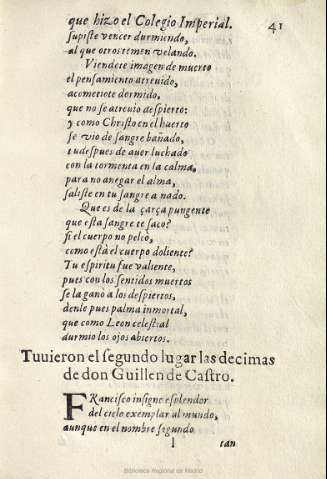 que hizo el Colegio Imperial. 41
supiste vencer durmiendo,
al que otros temen velando.
Viendote imagen de muerto
el pensamiento atreuido,
acometiote dormido,
que no se atreuio despierto:
y como Christo en el huerto
se vio de sangre bañado,
tu despues de auer luchado
con la tormenta en la calma,
para no anegar el alma,
saliste en tu sangre a nado.
Que es de la çarça pungente
que esta sangre te saco?
si el cuerpo no peleò,
como està el cuerpo doliente?
Tu espiritu fue valiente,
pues con los sentidos muertos
se la ganò a los despiertos,
denle pues palma inmortal,
que como Leon celestial
durmio los ojos abiertos.
Tuuieron el segundo lugar las decimas
de don Guillen de Castro.
FRancisco insigne esplendor
del cielo exemplar al mundo,
aunque en el nombre segundo
l tan
Biblioteca Regional de Madrid